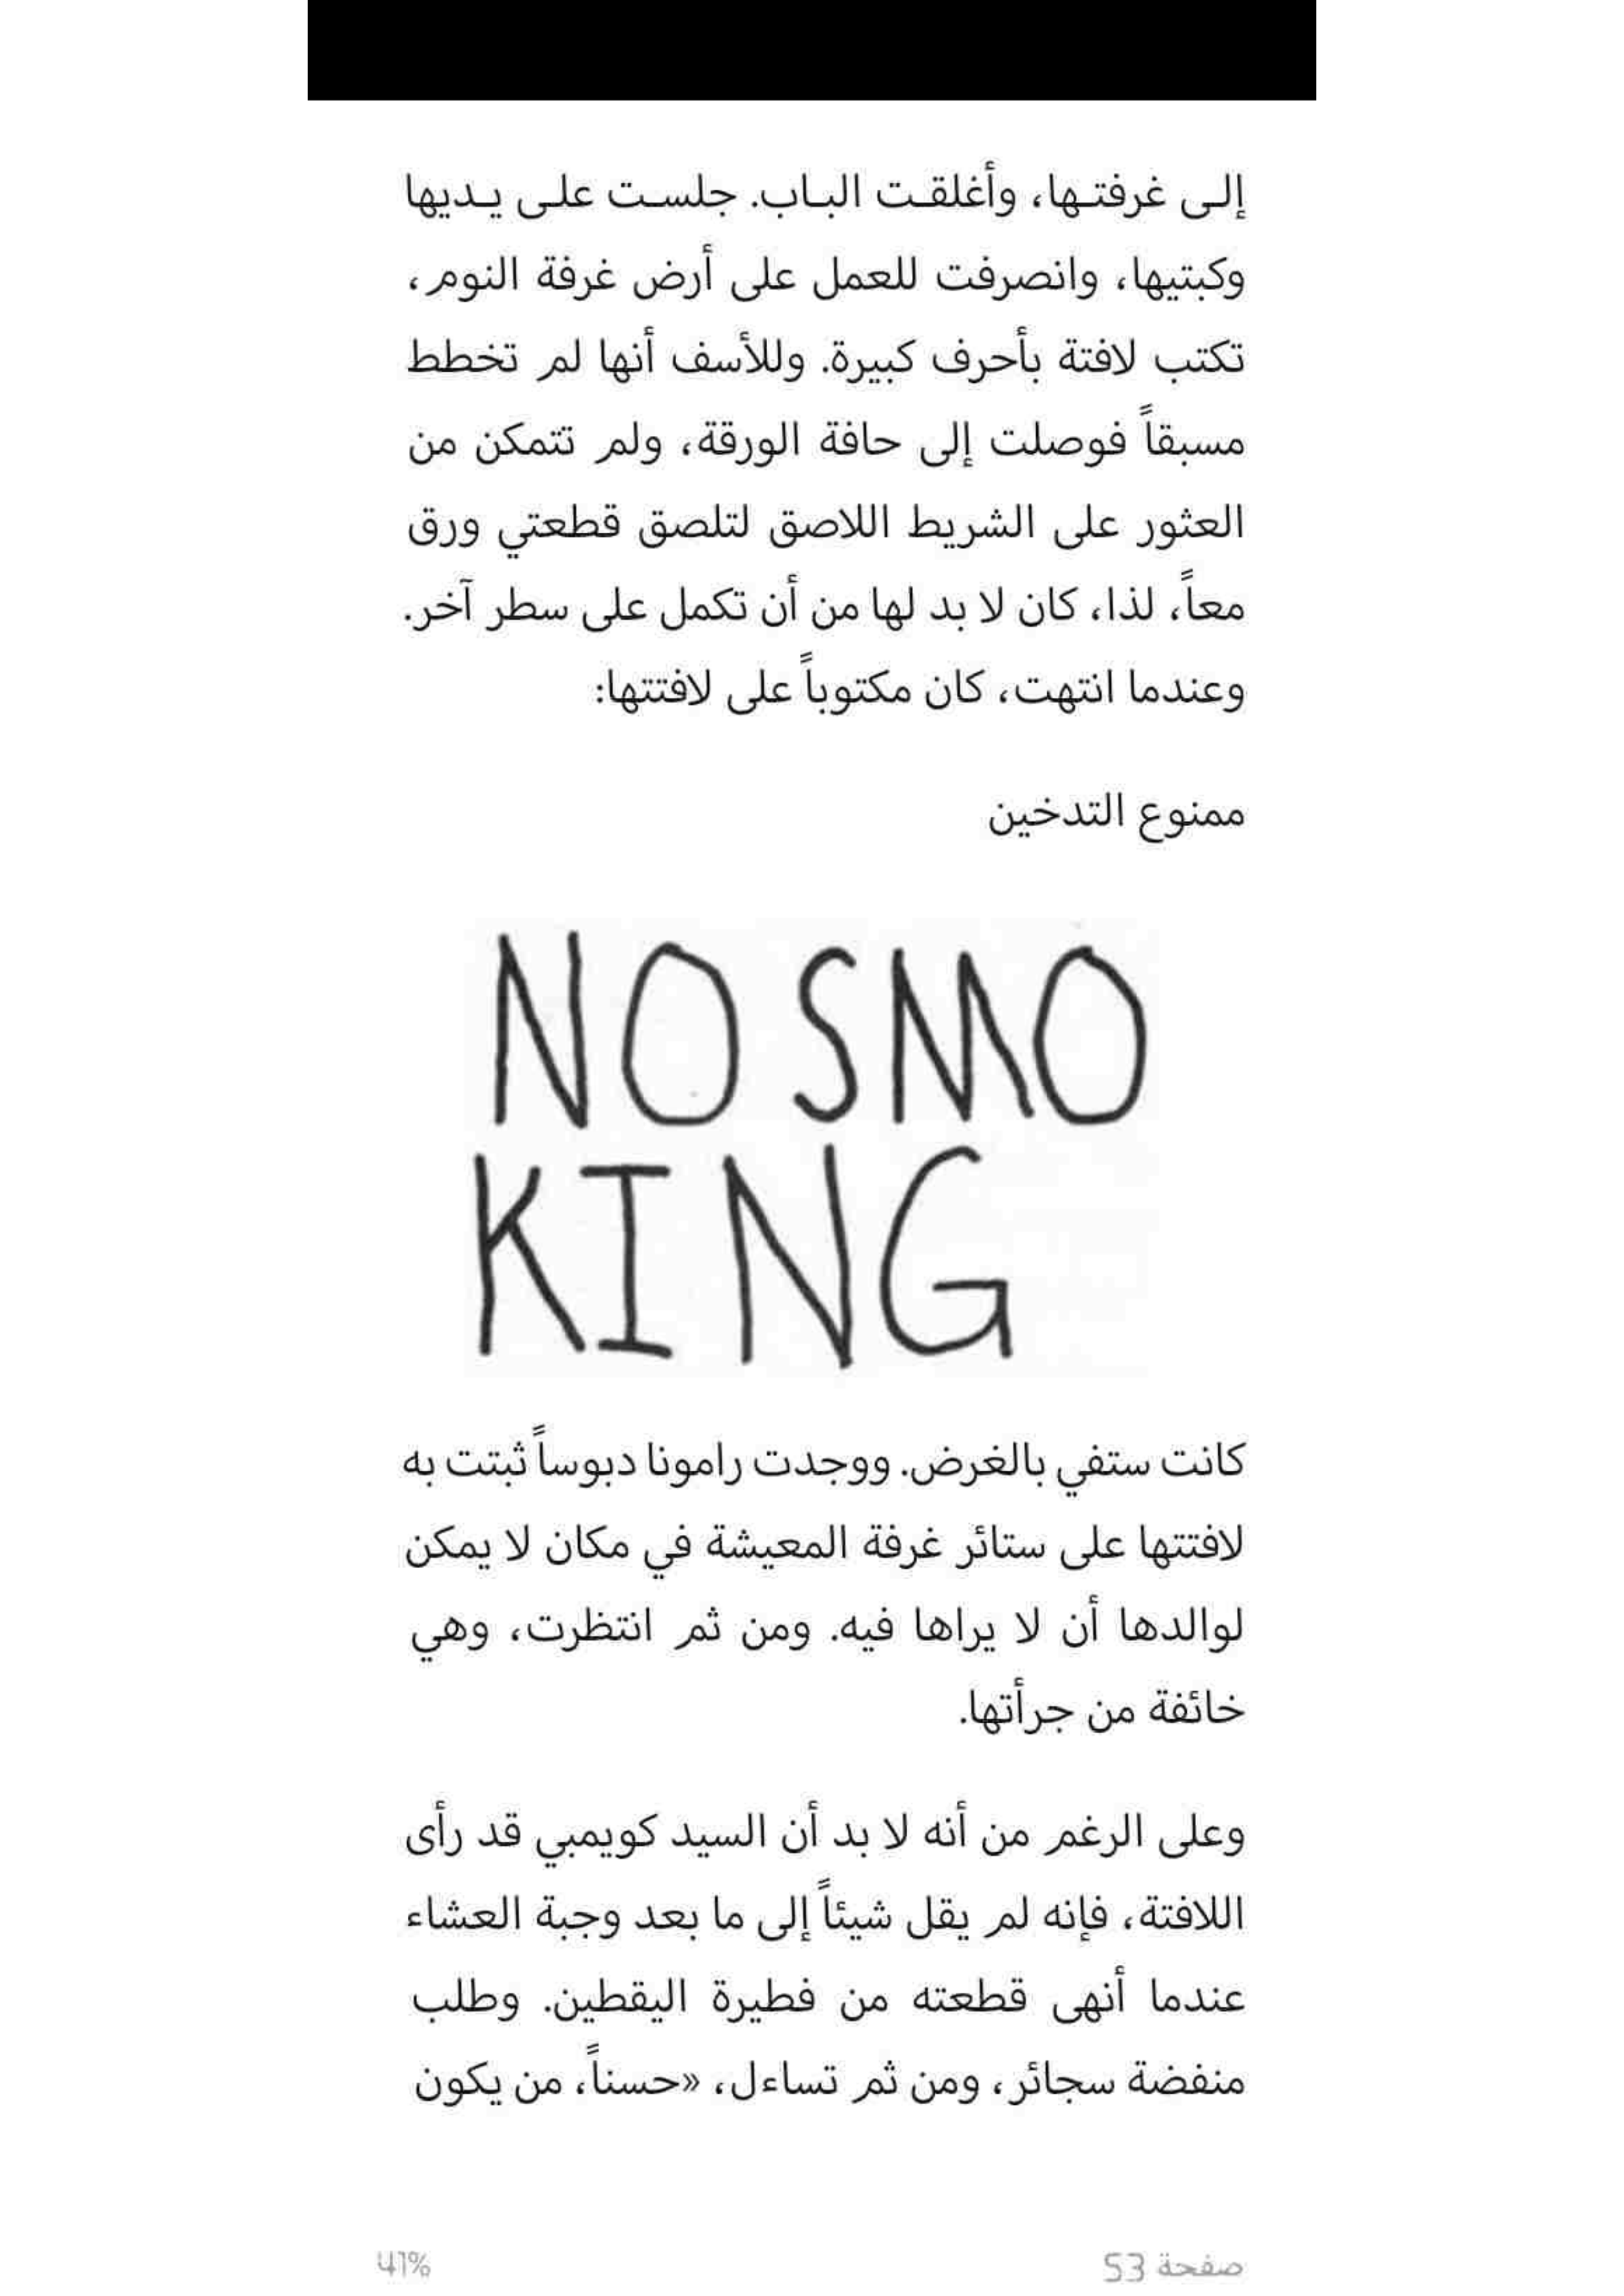 إلى غرفتها، وأغلقت الباب. جلست على يديها
وكبتيها، وانصرفت للعمل على أرض غرفة النوم،
تكتب لافتة بأحرف كبيرة. وللأسف أنها لم تخطط
مسبقاً فوصلت إلى حافة الورقة، ولم تتمكن من
العثور على الشريط اللاصق لتلصق قطعتي ورق
معاً، لذا، كان لا بد لها من أن تكمل على سطر آخر.
وعندما انتهت، كان مكتوباً على لافتتها:
ممنوع التدخين
NO SMO
KING
كانت ستفي بالغرض. ووجدت رامونا دبوساً ثبتت به
لافتتها على ستائر غرفة المعيشة في مكان لا يمكن
لوالدها أن لا يراها فيه. ومن ثم انتظرت، وهي
خائفة من جرأتها.
وعلى الرغم من أنه لا بد أن السيد كويمبي قد رأى
اللافتة، فإنه لم يقل شيئاً إلى ما بعد وجبة العشاء
عندما أنهى قطعته من فطيرة اليقطين. وطلب
منفضة سجائر، ومن ثم تساءل، «حسناً، من يكون
صفحة 53
41%